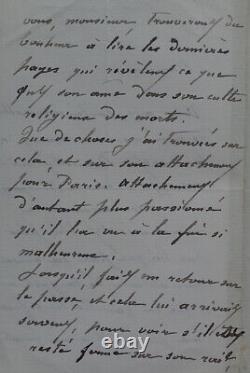 vous, monsieur trouveront du
bonheur à lire les dernières
pages qui révèlent ce que
fut son âme dans son culte
religieux des morts.
Que de choses j'ai trouvées sur
cela et sur son attachement
pour Paris. Attachement
d'autant plus passionné
qu'il l'a vu à la fin si
malheureux.
Lorsqu'il fait un retour sur
le passé, et cela lui arrivait
souvent, pour voir s'il
resté ferme sur son
ebay